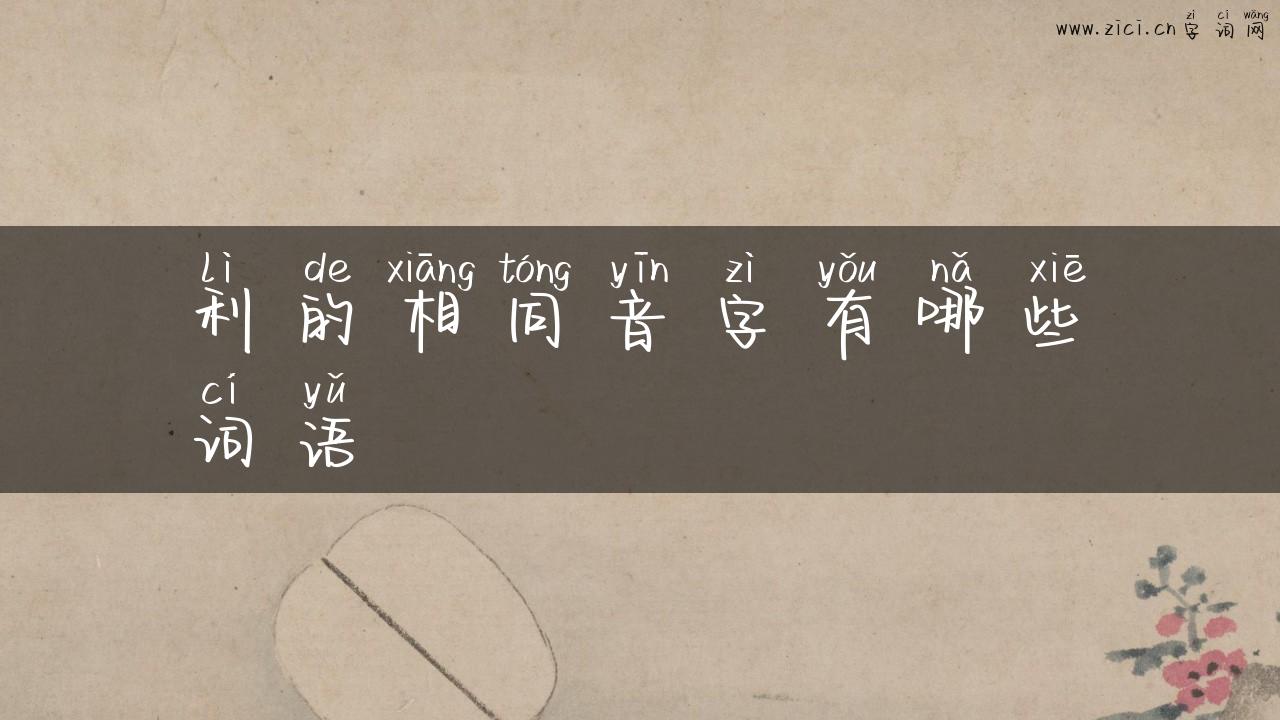 zì cí wǎng
www.zici.cn 字 词 网
lì de xiāng tóng yīn zì yǒu nǎ xiē
利 的 相 同 音 字 有 哪 些
cí yǔ
词 语